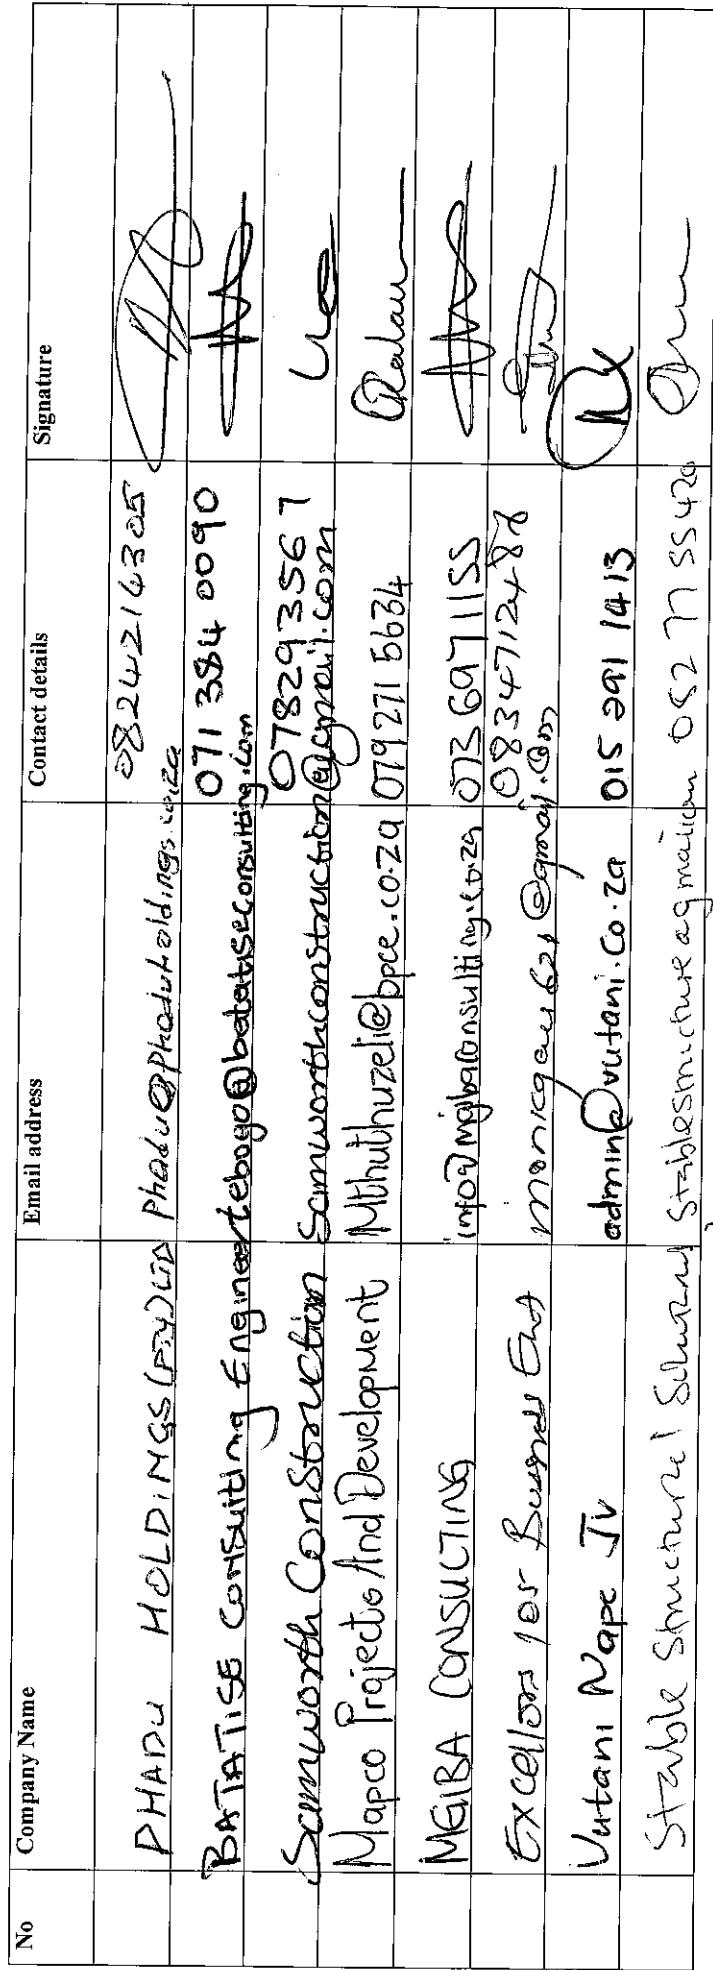 No Company Name Email address Contact details Signature
PHADU HOLDINGS (PTY) LTD Phadu@Phaduholdings.co.za 0824216305
BATATISE Consulting Engineer tebogo@batatiseconsulting.com 071 384 0090
Samworth Construction Samworthconstruction@gmail.com 0782935671
Mapco Projects And Development Mthuthuzeli@bpce.co.za 079271 5634
MGIBA CONSULTING info@mgibaconsulting.co.za 073 6971155
Excellors for Ent @gmail.com
Vutani Nape Jv admin@vutani.co.za 015 291 1413
Stable Structural 082 77 55420